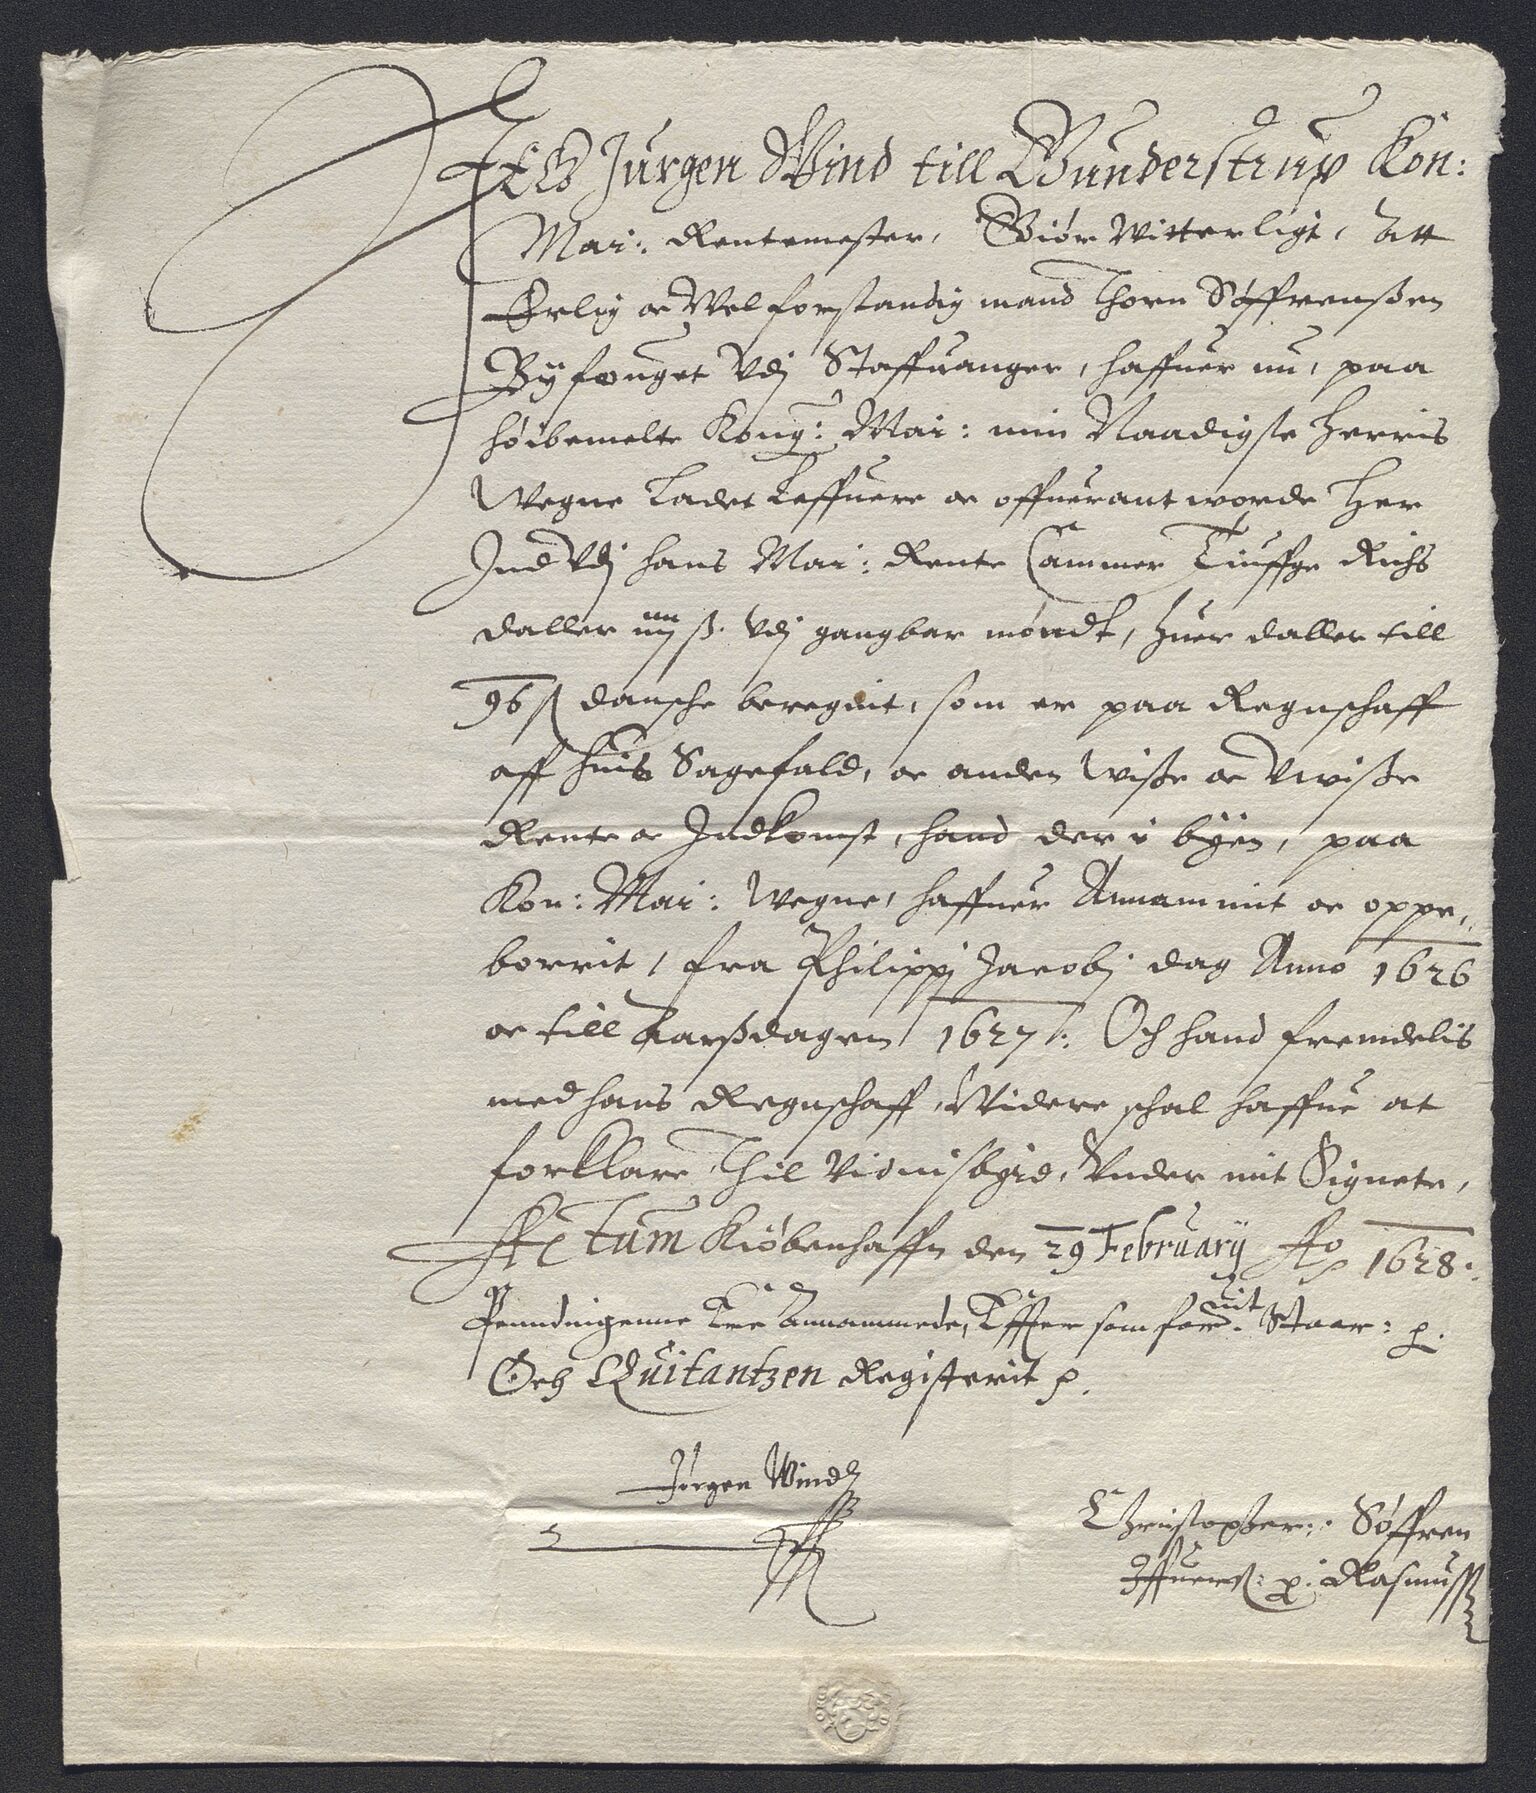 Jeg Jurgen Wind till Gunderstrup Kon:
Mai: Rentemester, Giør Witterligt, att
Erlig oc Velforstandig mand Thorn Søffrenßen
Byfouget Vdj Staffuanger, haffuer nu, paa
høibemelte Kong: Mai: min Naadigste Herris
Wegne Ladet Leffuere oc offuerantworde Her
Ind Vdj hans Mai: Rente Cammer Tiuffge Richs
daller ß. Vdj gangbar møndt, huer daller till
96 ß dansche beregnit, som er paa Regnschaff
aff huis Sagefald, oc anden Wiße oc Vwiße
Rente oc Indkomst, hand der i byen, paa
Kon: Mai: Wegne, haffuer Annammit oc oppe,,
borrit, fra Philippj Jacobj dag Anno 1626
oc till Aarßdagen 1627: Och hand fremdelis
med hans Regnschaff, Widere schal haffue at
forklare, Thil Vidnisbyrd, Vnder mit Signete,
Actum Kiøbenhaffn den 29 February Ao 1628.
Penndingenne Ere Annammede, Efter som for uit Staar: p.
Och Quitantzen Registerit p.
Jørgen Wind
Christopher: Søffren
Iffuerß: p: Rasmuß